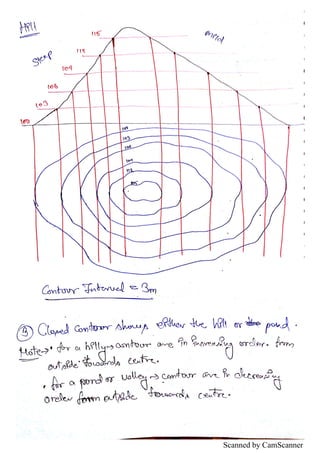 Hill
115
Steep
112
109
106
103
100
100
103
106
109
112
115
Contour Interval = 3m
③ Closed contour shows either the hill or the pond.
Note → • for a hilly → contour are in increasing order from
outside towards centre.
• for a pond or valley → contour are in decreasing
order from outside towards centre.
Scanned by CamScanner